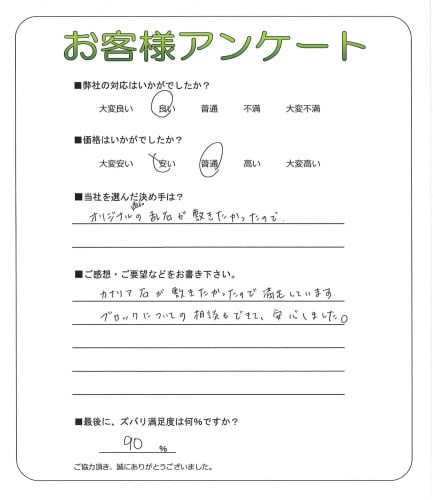 お客様アンケート
■弊社の対応はいかがでしたか？
大変良い 良い 普通 不満 大変不満
■価格はいかがでしたか？
大変安い 安い 普通 高い 大変高い
■当社を選んだ決め手は？
オリジナルの乱石が敷きたかったので
■ご感想・ご要望などをお書き下さい。
カナリア石が敷きたかったので満足しています
ブロックについての相談もできて、安心しました。
■最後に、ズバリ満足度は何％ですか？
90 ％
ご協力頂き、誠にありがとうございました。